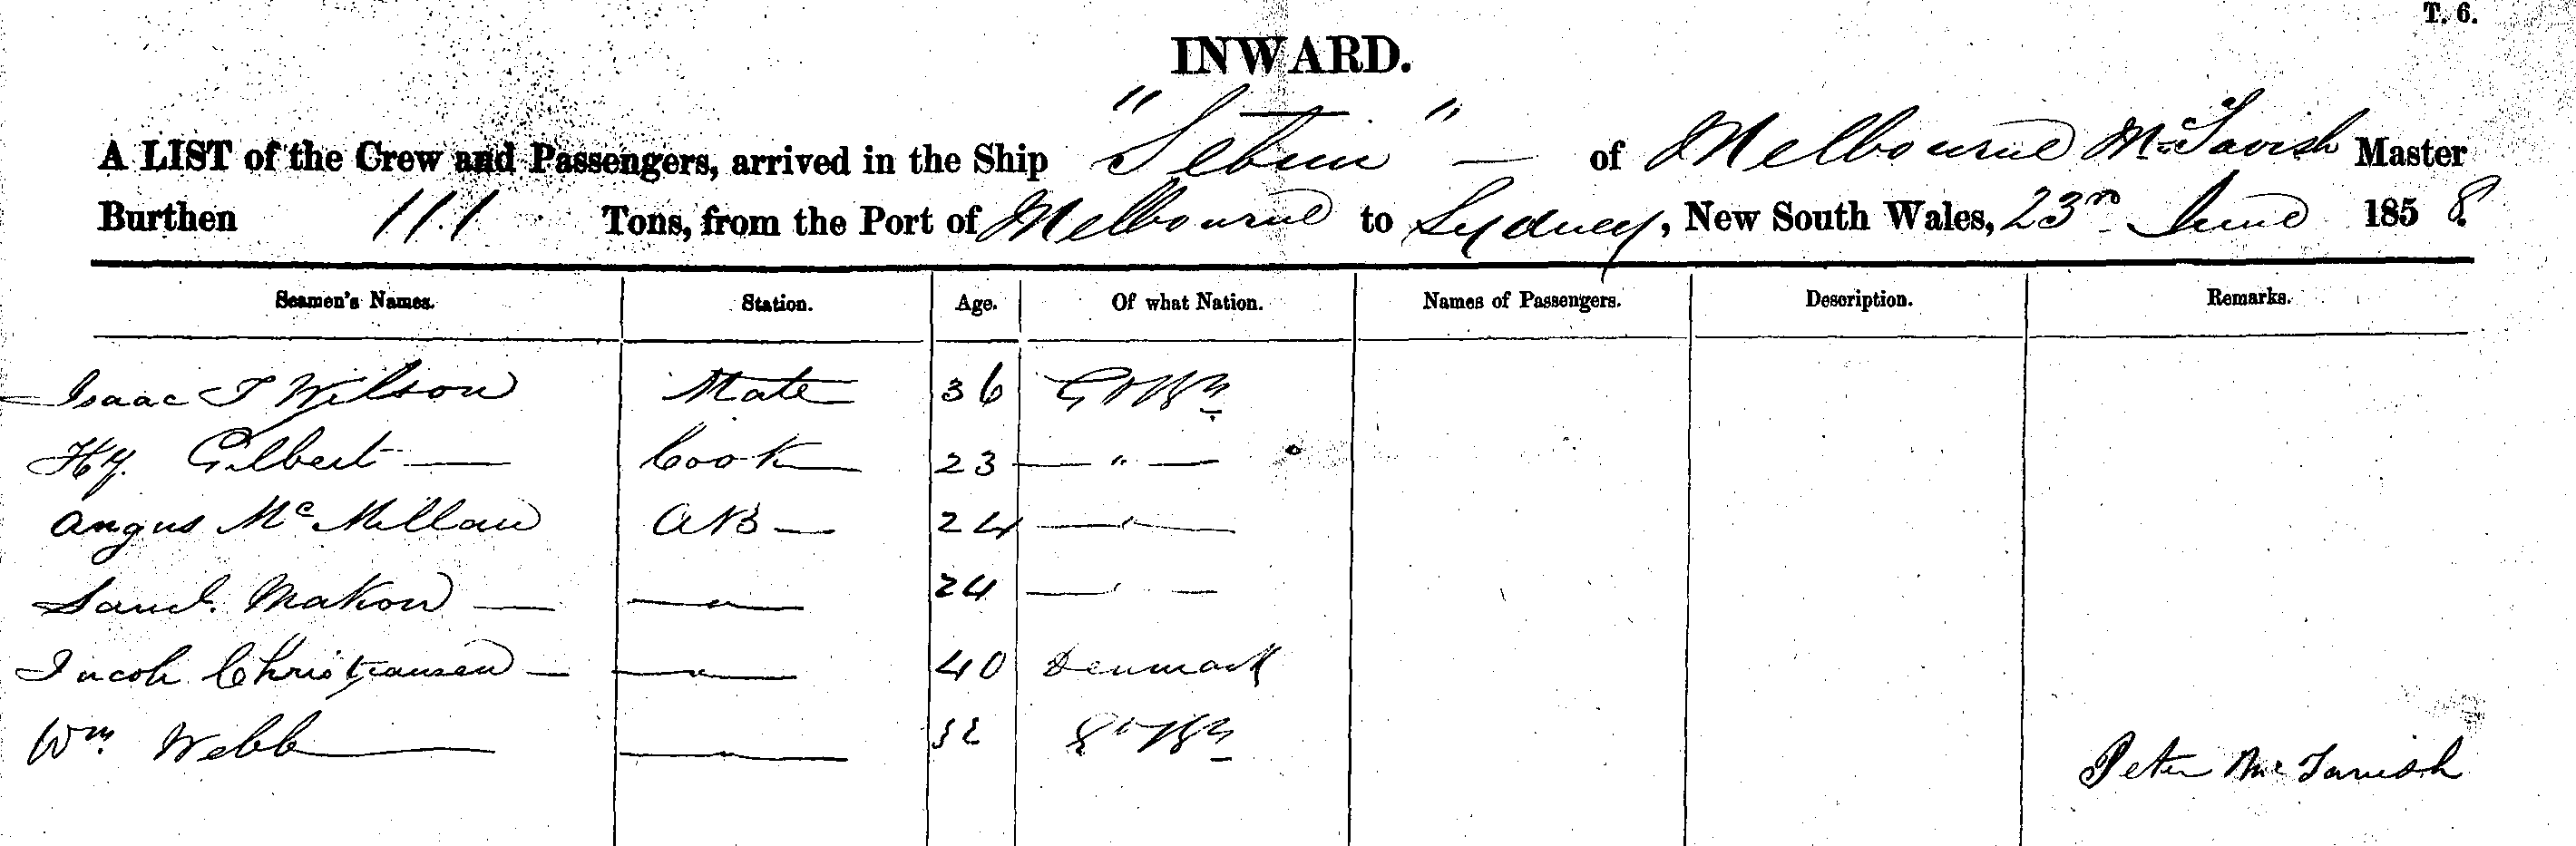 T. 6.
INWARD.
A LIST of the Crew and Passengers, arrived in the Ship " " — of Melbourne McTavish Master
Burthen 111 Tons, from the Port of Melbourne to Sydney, New South Wales, 23rd June 1858.
Seamen's Names. Station. Age. Of what Nation. Names of Passengers. Description. Remarks.
Isaac T Wilson Mate 36 Gt Bn
Hy. Gilbert — Cook 23 — " —
Angus McMillan AB — 24 — " —
Saml. — — " — 24 — " —
Jacob Christiansen — — " — 40 Denmark
Wm Webb — — " — 32 Gt Bn
Peter McTavish